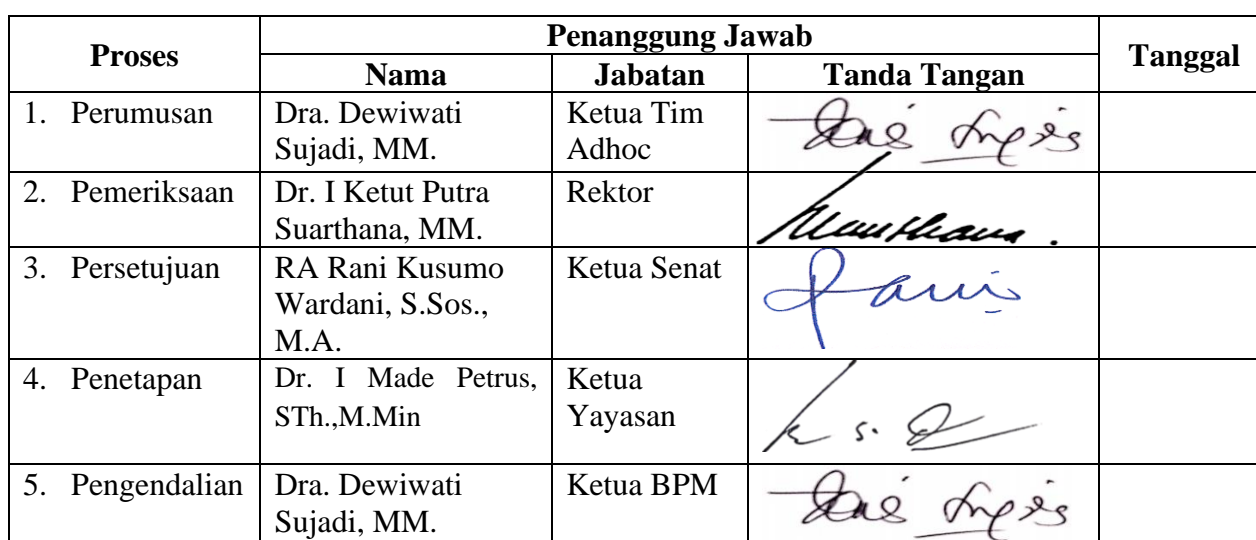 Proses
Penanggung Jawab
Tanggal
Nama
Jabatan
Tanda Tangan
1. Perumusan
Dra. Dewiwati
Sujadi, MM.
Ketua Tim
Adhoc
2. Pemeriksaan
Dr. I Ketut Putra
Suarthana, MM.
Rektor
3. Persetujuan
RA Rani Kusumo
Wardani, S.Sos.,
M.A.
Ketua Senat
4. Penetapan
Dr. I Made Petrus,
STh.,M.Min
Ketua
Yayasan
5. Pengendalian
Dra. Dewiwati
Sujadi, MM.
Ketua BPM